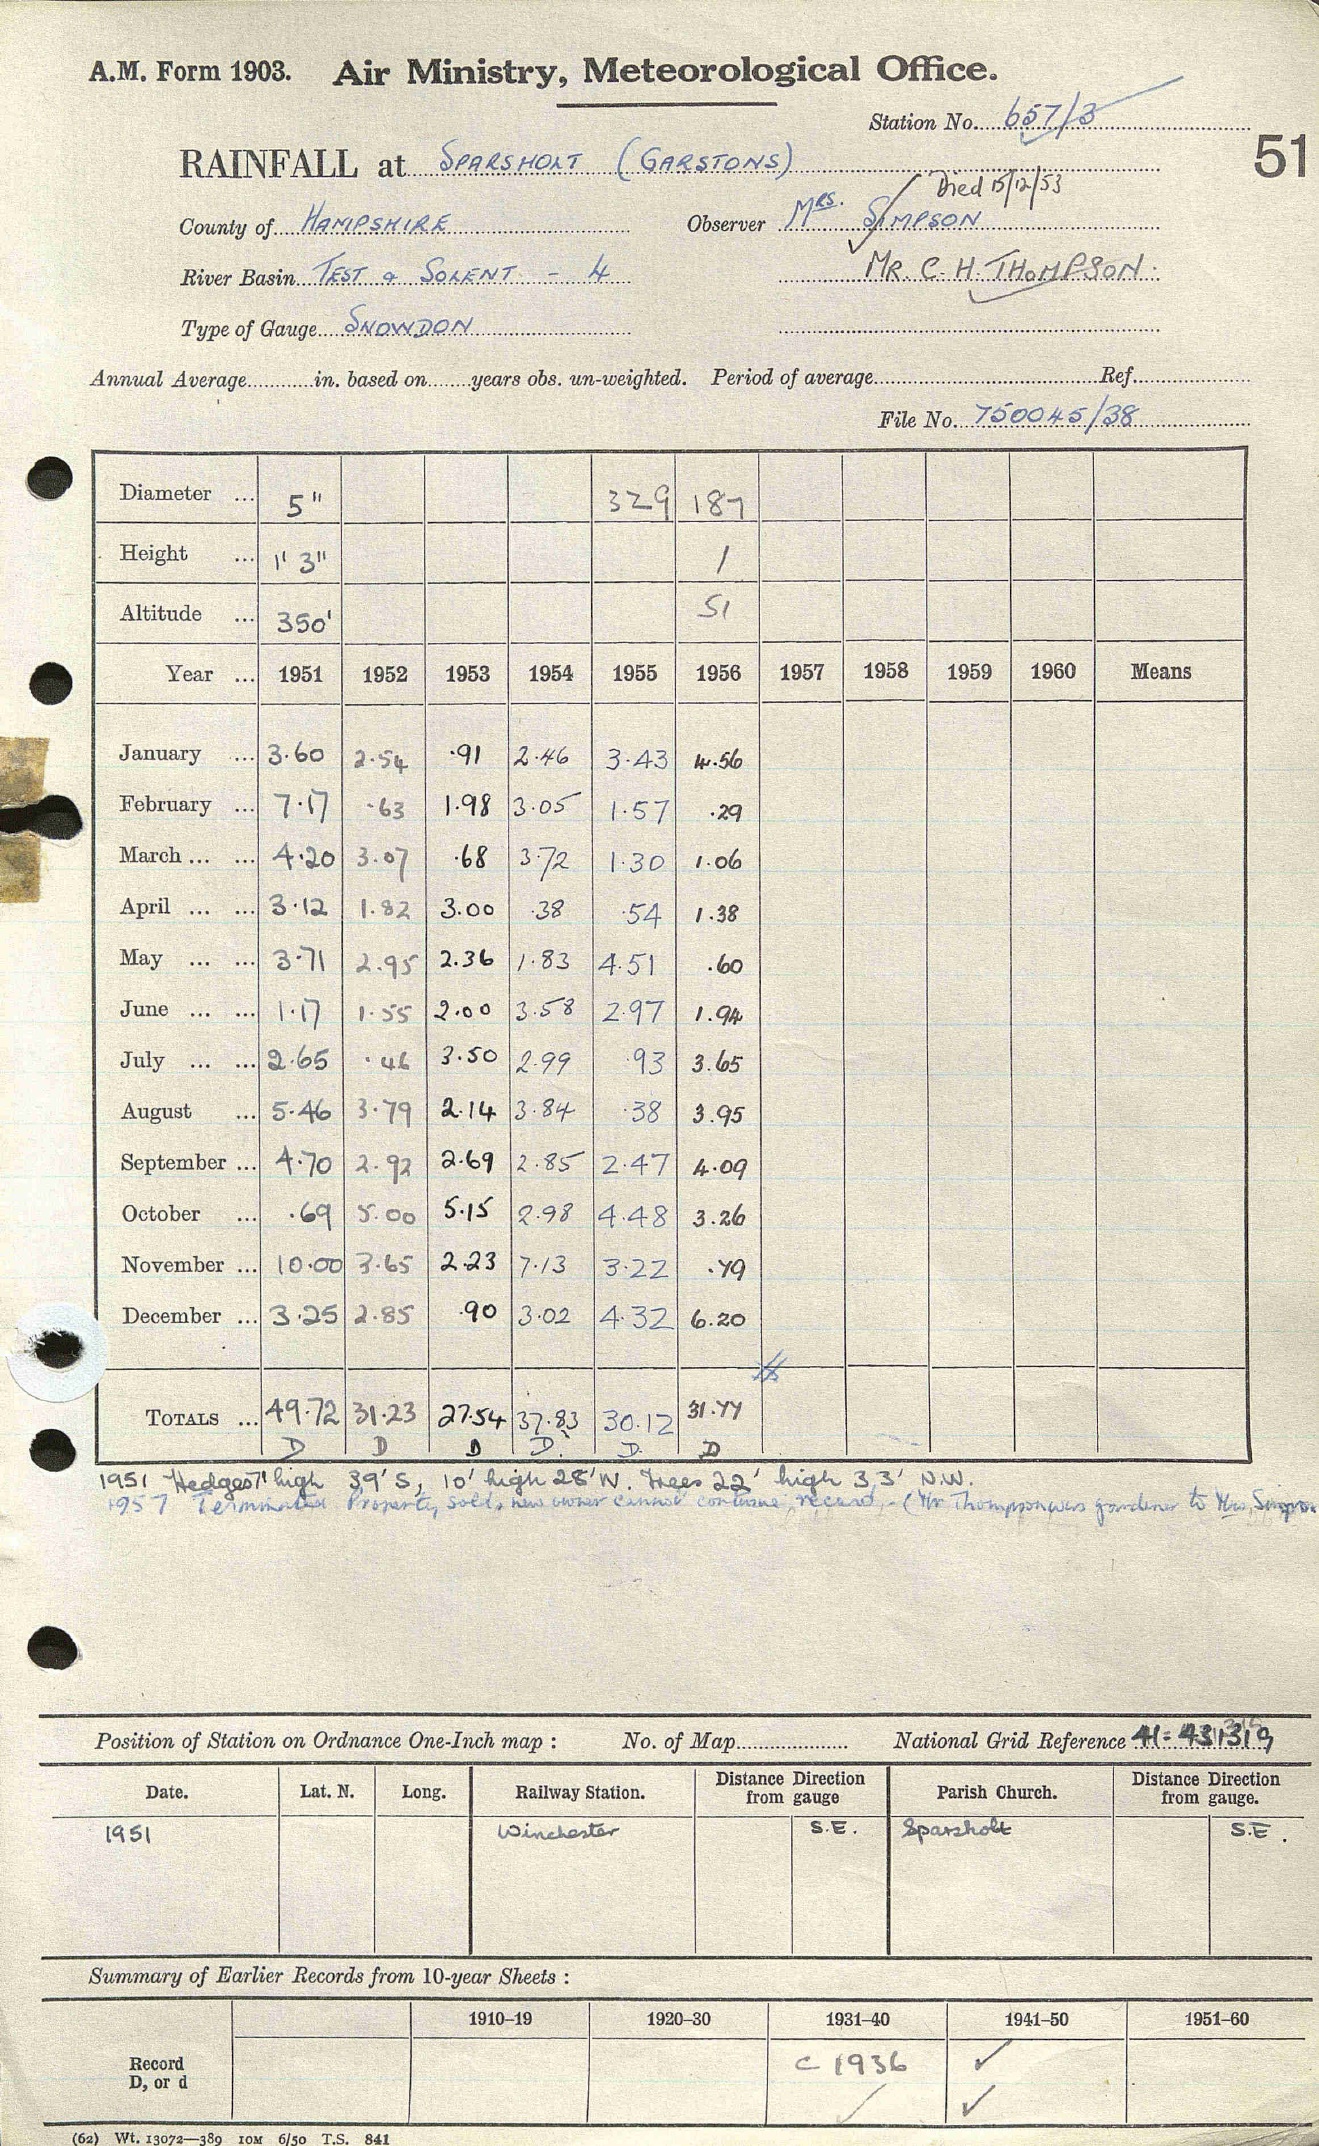 A.M. Form 1903. Air Ministry, Meteorological Office.
Station No. 657/3
51
RAINFALL at SPARSHOLT (GARSTONS)
Died 15/12/53
County of HAMPSHIRE Observer MRS. SIMPSON
River Basin TEST & SOLENT - 4 MR. C. H. THOMPSON.
Type of Gauge SNOWDON
Annual Average in. based on years obs. un-weighted. Period of average Ref.
File No. 750045/38
Diameter ... 5" 329 187
Height ... 1' 3" 1
Altitude ... 350' 51
Year ... 1951 1952 1953 1954 1955 1956 1957 1958 1959 1960 Means
January ... 3.60 2.54 .91 2.46 3.43 4.56
February ... 7.17 .63 1.98 3.05 1.57 .29
March ... ... 4.20 3.07 .68 3.72 1.30 1.06
April ... ... 3.12 1.82 3.00 .38 .54 1.38
May ... ... 3.71 2.95 2.36 1.83 4.51 .60
June ... ... 1.17 1.55 2.00 3.58 2.97 1.94
July ... ... 2.65 .46 3.50 2.99 .93 3.65
August ... 5.46 3.79 2.14 3.84 .38 3.95
September ... 4.70 2.92 2.69 2.85 2.47 4.09
October ... .69 5.00 5.15 2.98 4.48 3.26
November ... 10.00 3.65 2.23 7.13 3.22 .79
December ... 3.25 2.85 .90 3.02 4.32 6.20
TOTALS ... 49.72 31.23 27.54 37.83 30.12 31.77
D D D D D D
1951 Hedges 7' high 39' S, 10' high 28' W. Trees 22' high 33' N.W.
1957 Terminated Property sold, new owner cannot continue record. - (Mr Thompson was gardener to Mrs. Simpson
Position of Station on Ordnance One-Inch map : No. of Map National Grid Reference 41 = 431319
Date. Lat. N. Long. Railway Station. Distance Direction from gauge Parish Church. Distance Direction from gauge.
1951 Winchester S.E. Sparsholt S.E.
Summary of Earlier Records from 10-year Sheets :
1910–19 1920–30 1931–40 1941–50 1951–60
Record D, or d c 1936 ✓
✓ ✓
(62) Wt. 13072—389 10M 6/50 T.S. 841